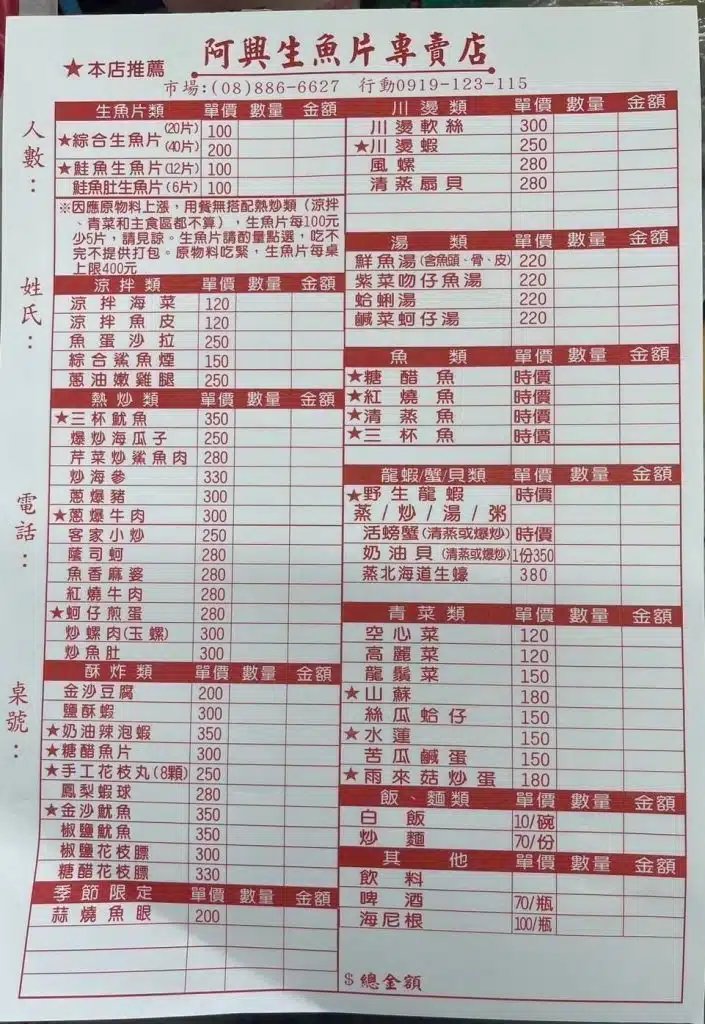 阿興生魚片專賣店
★本店推薦
市場:(08)886-6627 行動0919-123-115
人數：
姓氏：
電話：
桌號：
生魚片類 單價 數量 金額
★綜合生魚片(20片) 100
(40片) 200
★鮭魚生魚片(12片) 100
鮭魚肚生魚片(6片) 100
※因應原物料上漲，用餐無搭配熱炒類（涼拌
、青菜和主食區都不算），生魚片每100元
少5片，請見諒。生魚片請酌量點選，吃不
完不提供打包。原物料吃緊，生魚片每桌
上限400元
涼拌類 單價 數量 金額
涼拌海菜 120
涼拌魚皮 120
魚蛋沙拉 250
綜合鯊魚煙 150
蔥油嫩雞腿 250
熱炒類 單價 數量 金額
★三杯魷魚 350
爆炒海瓜子 250
芹菜炒鯊魚肉 280
炒海參 330
蔥爆豬 300
★蔥爆牛肉 300
客家小炒 250
蔭司蚵 280
魚香麻婆 280
紅燒牛肉 300
★蚵仔煎蛋 280
炒螺肉(玉螺) 300
炒魚肚 300
酥炸類 單價 數量 金額
金沙豆腐 200
鹽酥蝦 300
★奶油辣泡蝦 350
★糖醋魚片 300
★手工花枝丸(8顆) 250
鳳梨蝦球 280
★金沙魷魚 350
椒鹽魷魚 350
椒鹽花枝膘 300
糖醋花枝膘 330
季節限定 單價 數量 金額
蒜燒魚眼 200
川燙類 單價 數量 金額
川燙軟絲 300
★川燙蝦 250
風螺 280
清蒸扇貝 280
湯類 單價 數量 金額
鮮魚湯(含魚頭、骨、皮) 220
紫菜吻仔魚湯 220
蛤蜊湯 220
鹹菜蚵仔湯 220
魚類 單價 數量 金額
★糖醋魚 時價
★紅燒魚 時價
★清蒸魚 時價
★三杯魚 時價
龍蝦/蟹/貝類 單價 數量 金額
★野生龍蝦 時價
蒸/炒/湯/粥
活螃蟹(清蒸或爆炒) 時價
奶油貝(清蒸或爆炒) 1份350
蒸北海道生蠔 380
青菜類 單價 數量 金額
空心菜 120
高麗菜 120
龍鬚菜 150
★山蘇 180
絲瓜蛤仔 150
★水蓮 150
苦瓜鹹蛋 150
★雨來菇炒蛋 180
飯、麵類 單價 數量 金額
白飯 10/碗
炒麵 70/份
其他 單價 數量 金額
飲料
啤酒 70/瓶
海尼根 100/瓶
$總金額